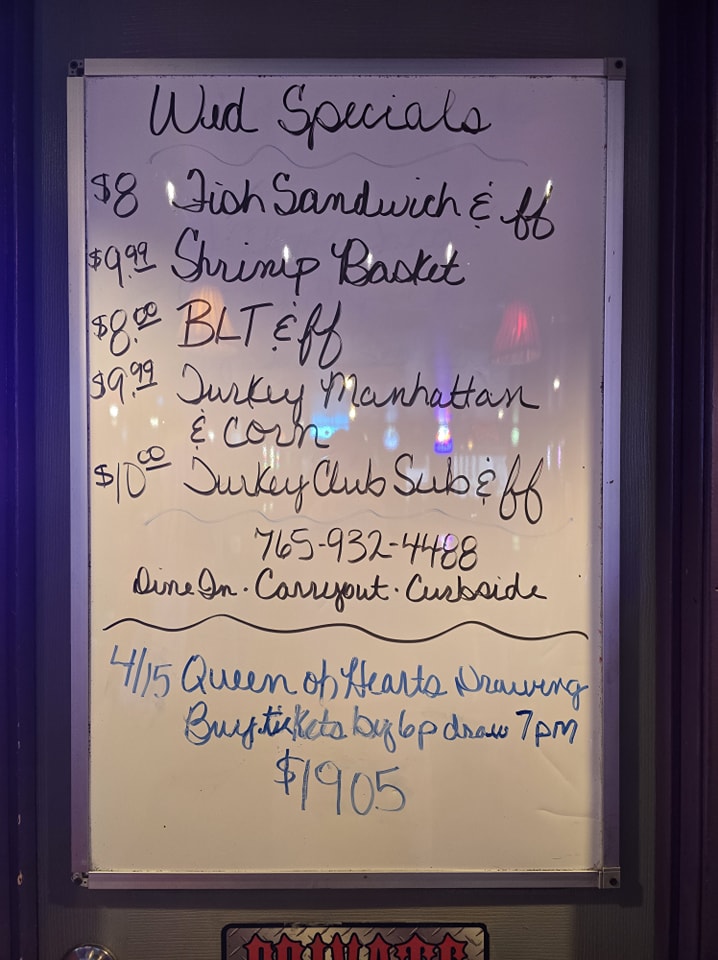 Wed Specials
$8 Fish Sandwich & ff
$9.99 Shrimp Basket
$8.00 BLT & ff
$9.99 Turkey Manhattan
& corn
$10.00 Turkey Club Sub & ff
765-932-4488
Dine In · Carryout · Curbside
4/15 Queen of Hearts Drawing
Buy tickets by 6p draw 7pm
$1905
PRIVATE